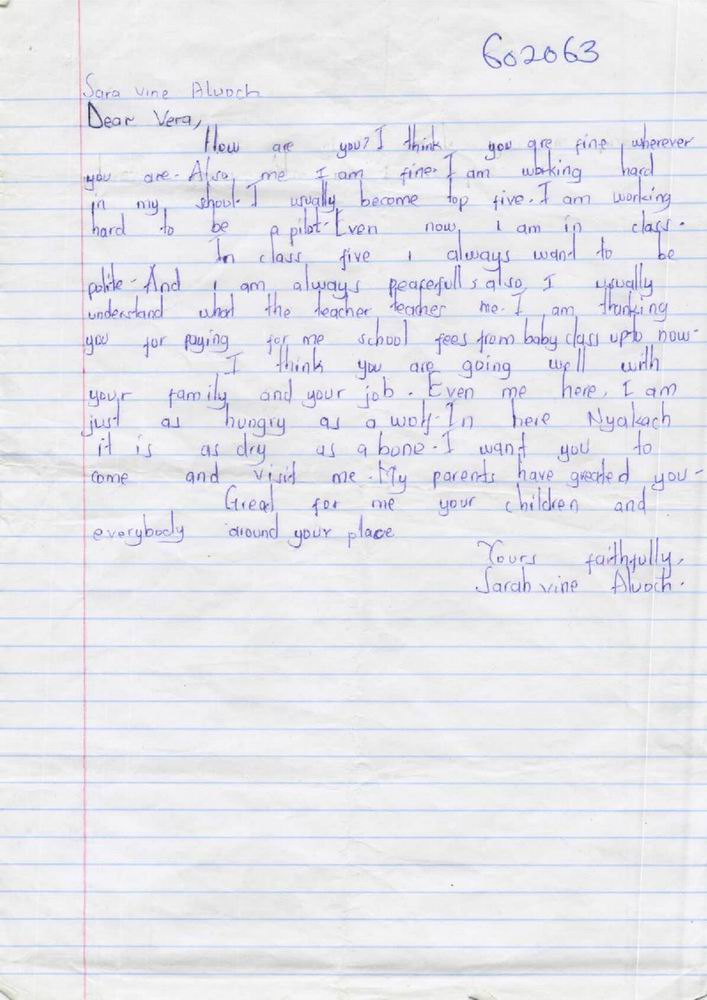 602063
Sara vine Aluoch
Dear Vera,
How are you? I think you are fine wherever
you are. Also me I am fine. I am working hard
in my shool. I usually become top five. I am working
hard to be a pilot. Even now, i am in class.
In class five i always want to be
polite. And i am always peacefull, also I usually
understand what the teacher teaches me. I am thanking
you for paying for me school fees from baby class upto now.
I think you are going well with
your family and your job. Even me here, I am
just as hungry as a wolf. In here Nyakach
it is as dry as a bone. I want you to
come and visit me. My parents have greated you.
Great for me your children and
everybody around your place
Yours faithfully,
Sarah vine Aluoch.